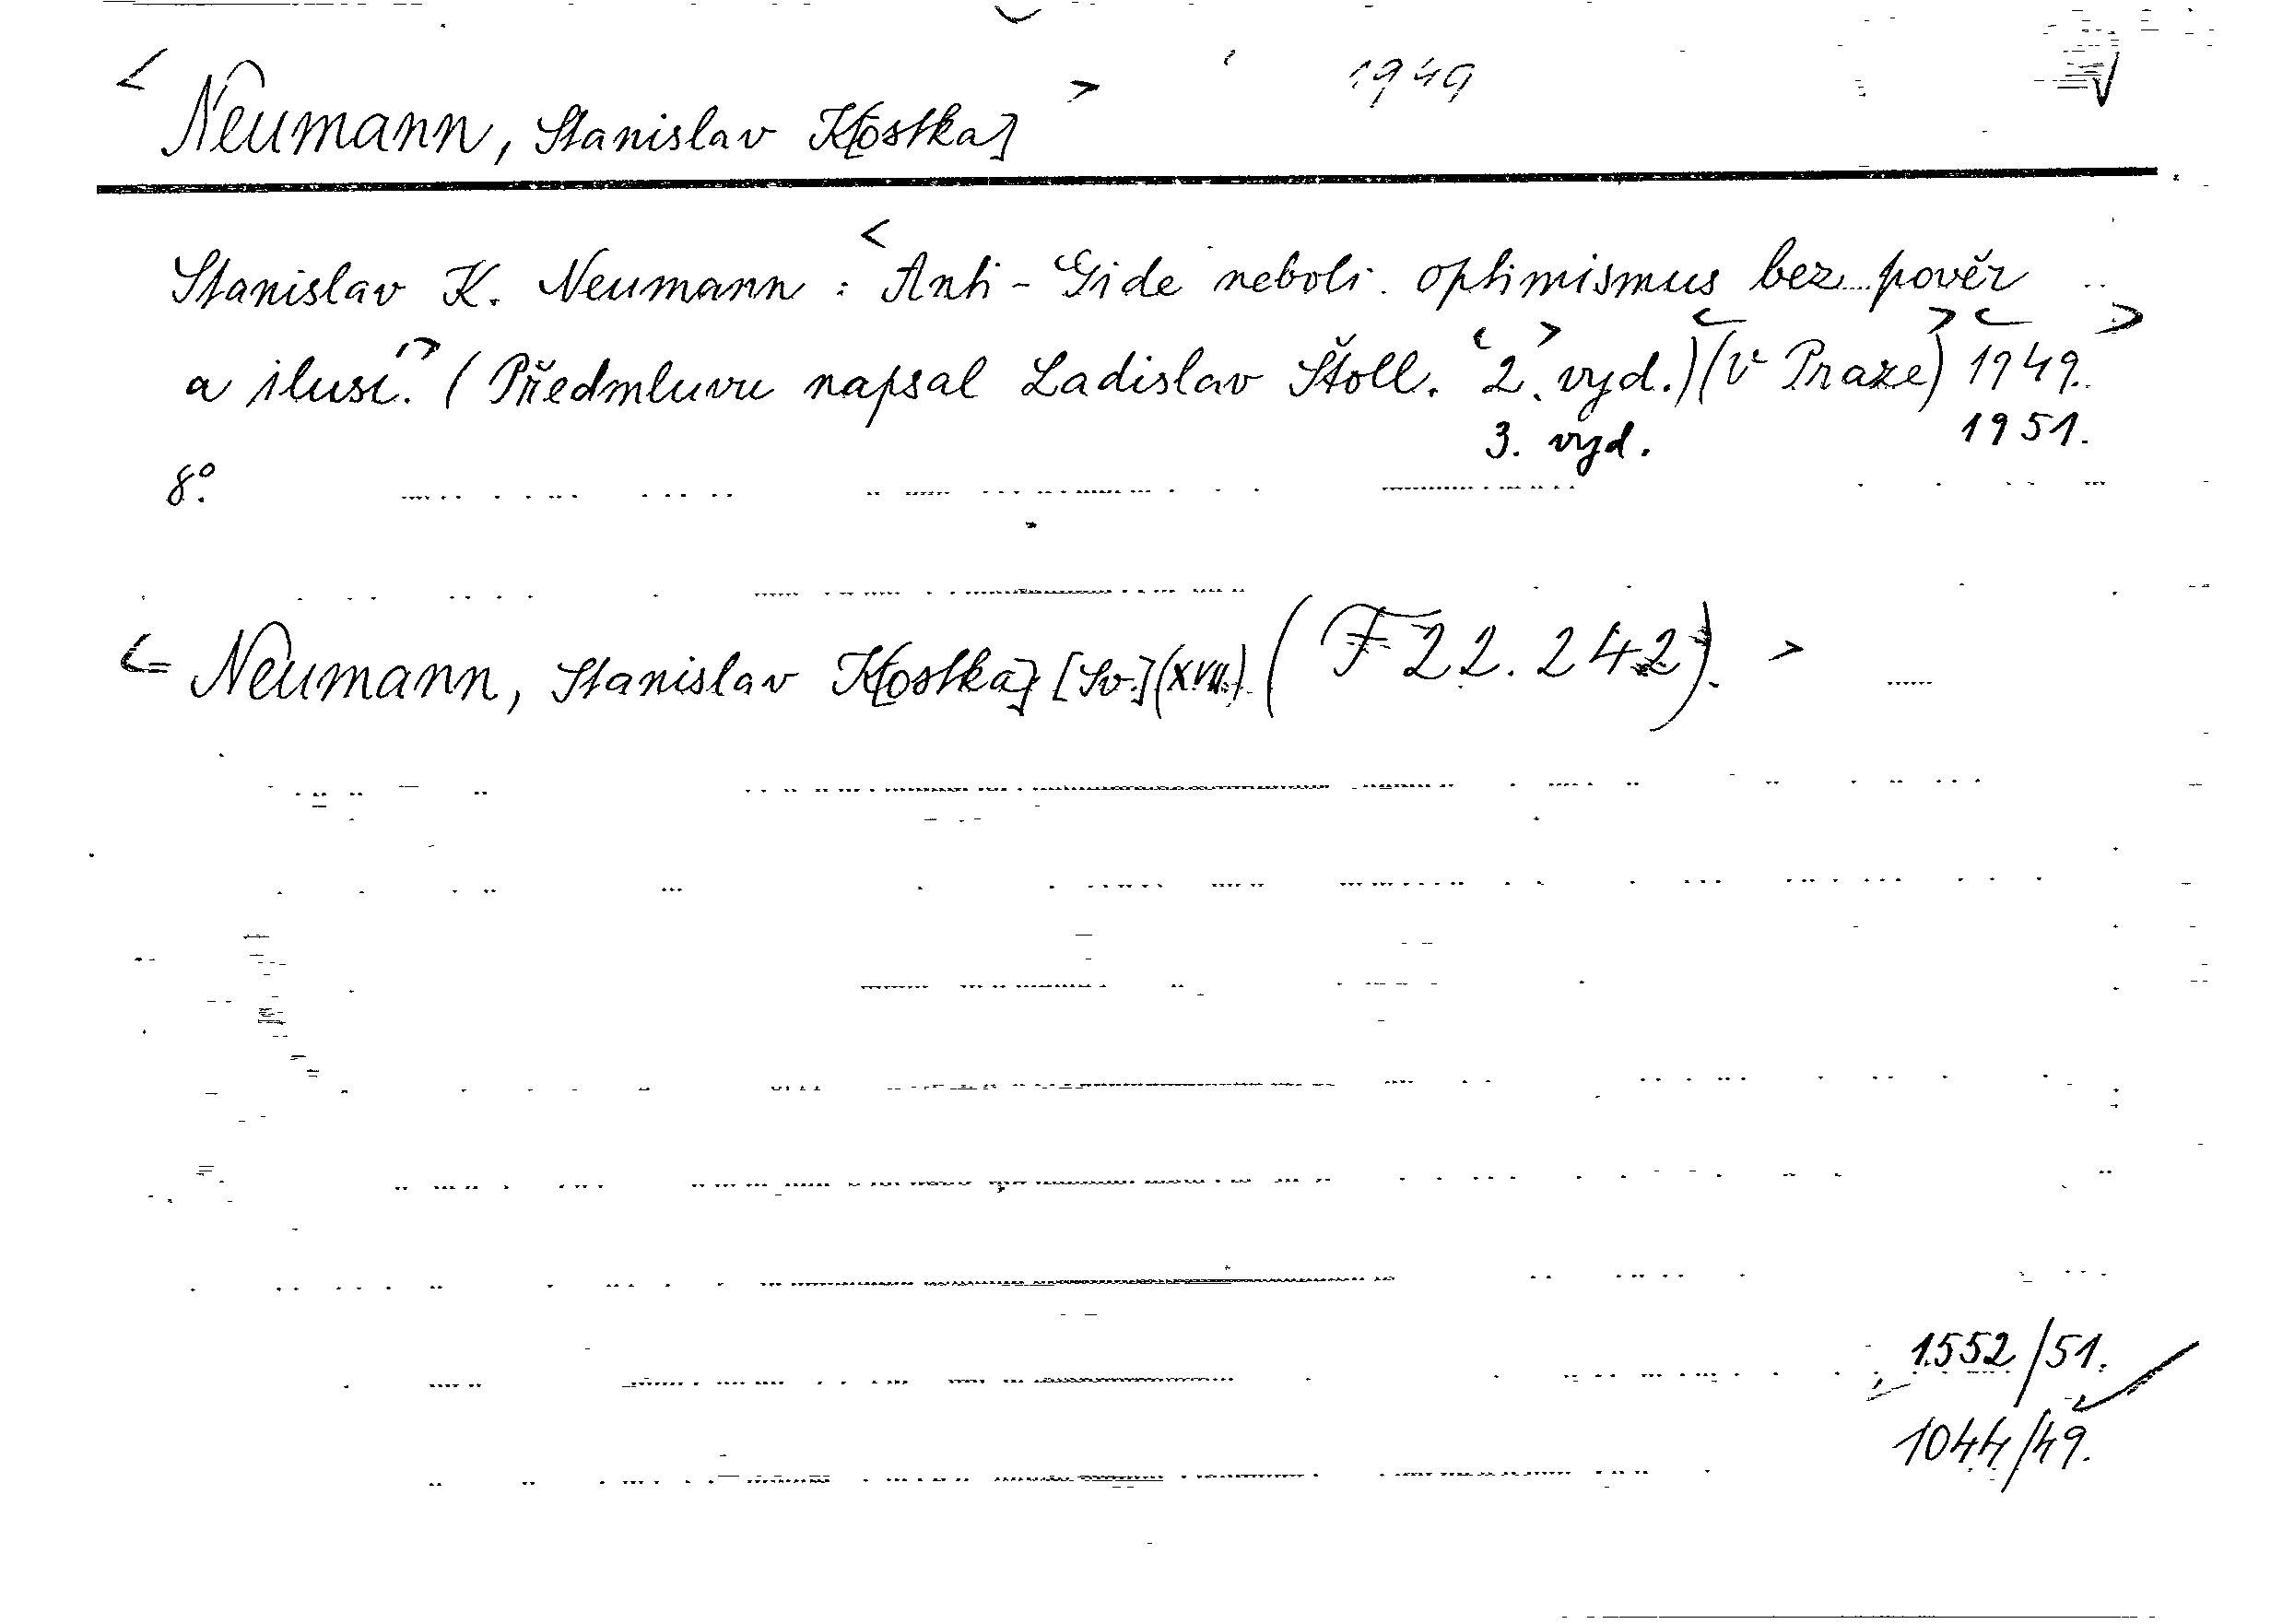 < Neumann, Stanislav K[ostka] > 1949
Stanislav K. Neumann : <Anti-Gide neboli optimismus bez pověr
a ilusí.> (Předmluvu napsal Ladislav Štoll. <2.> vyd.) <(V Praze)> <1949.>
3. vyd. 1951.
8°.
<= Neumann, Stanislav K[ostka] [Sv.] (XVII.) (F 22.242). >
1552/51.
1044/49.